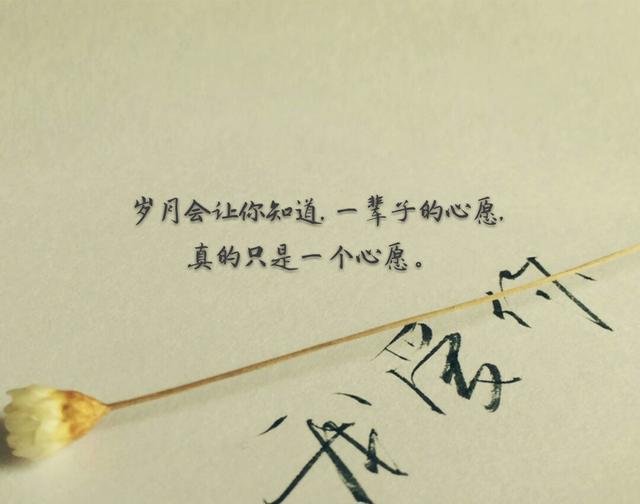 岁月会让你知道,一辈子的心愿,
真的只是一个心愿。